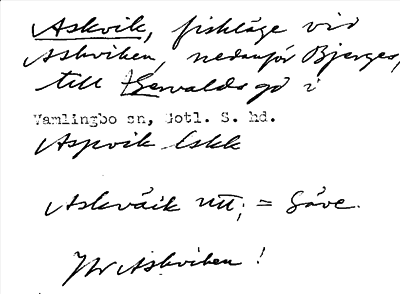 Askvik, fiskläge vid
Askviken, nedanför Bjerges,
till Gervalds gd i
Vamlingbo sn, Gotl. S. hd.
Aspvik Eskk
Askväik utt; = Gåve.
Jfr Askviken!